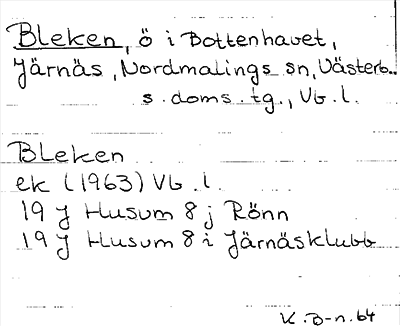 Bleken, ö i Bottenhavet,
Järnäs, Nordmalings sn, Västerb.
s. doms. tg., Vb. l.
Bleken
ek (1963) Vb. l.
19 J Husum 8 j Rönn
19 J Husum 8 i Järnäsklubb
K. B-n. 64